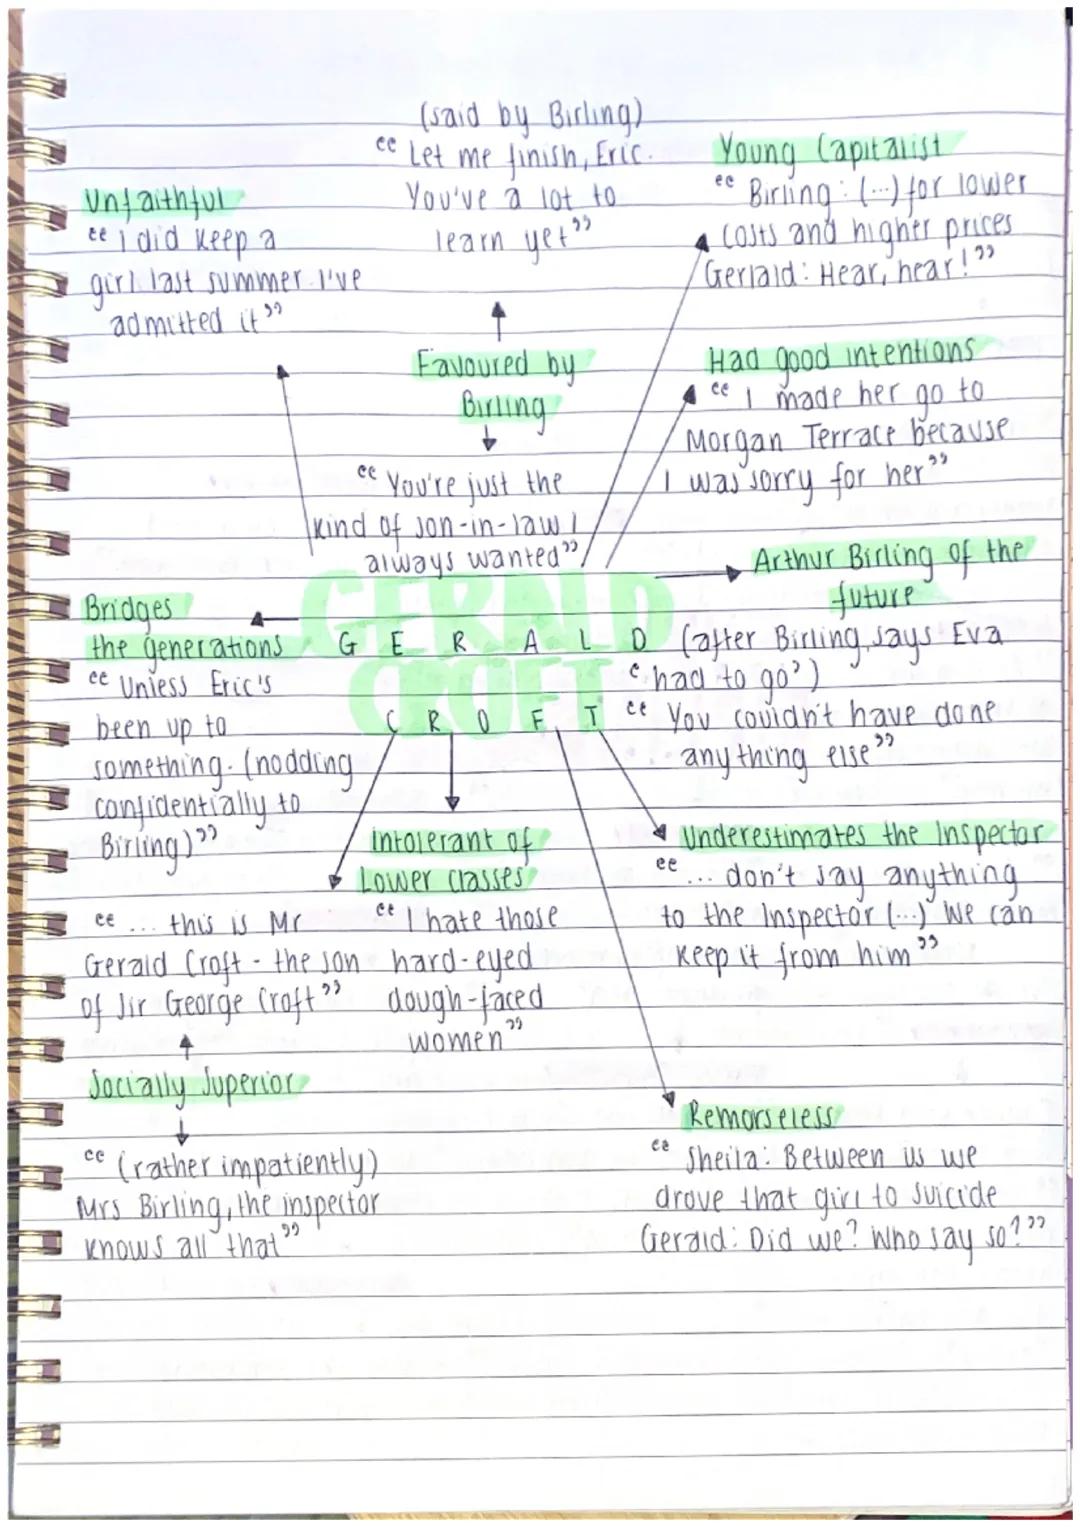 (said by Birling)
"Let me finish, Eric.
You've a lot to
learn yet"
Favoured by
Birling
"You're just the
kind of son-in-law I
always wanted"
Unfaithful
"I did keep a
girl last summer. I've
admitted it"
Young Capitalist
"Birling: (...) for lower
costs and higher prices
Gerlald: Hear, hear!"
Had good intentions
"I made her go to
Morgan Terrace because
I was sorry for her"
Arthur Birling of the
future
(after Birling says Eva
'had to go')
"You couldn't have done
anything else"
Bridges
the generations
"Unless Eric's
been up to
something. (nodding
confidentially to
Birling)"
GERALD
CROFT
G E R A L D
C R O F T
Intolerant of
Lower classes
"I hate those
hard-eyed
dough-faced
women"
Underestimates the Inspector
"... don't say anything
to the Inspector (...) We can
keep it from him"
"... this is Mr
Gerald Croft - the son
of Sir George Croft"
Socially Superior
"(rather impatiently)
Mrs Birling, the inspector
knows all that"
Remorseless
"Sheila: Between us we
drove that girl to suicide
Gerald: Did we? Who say so?"